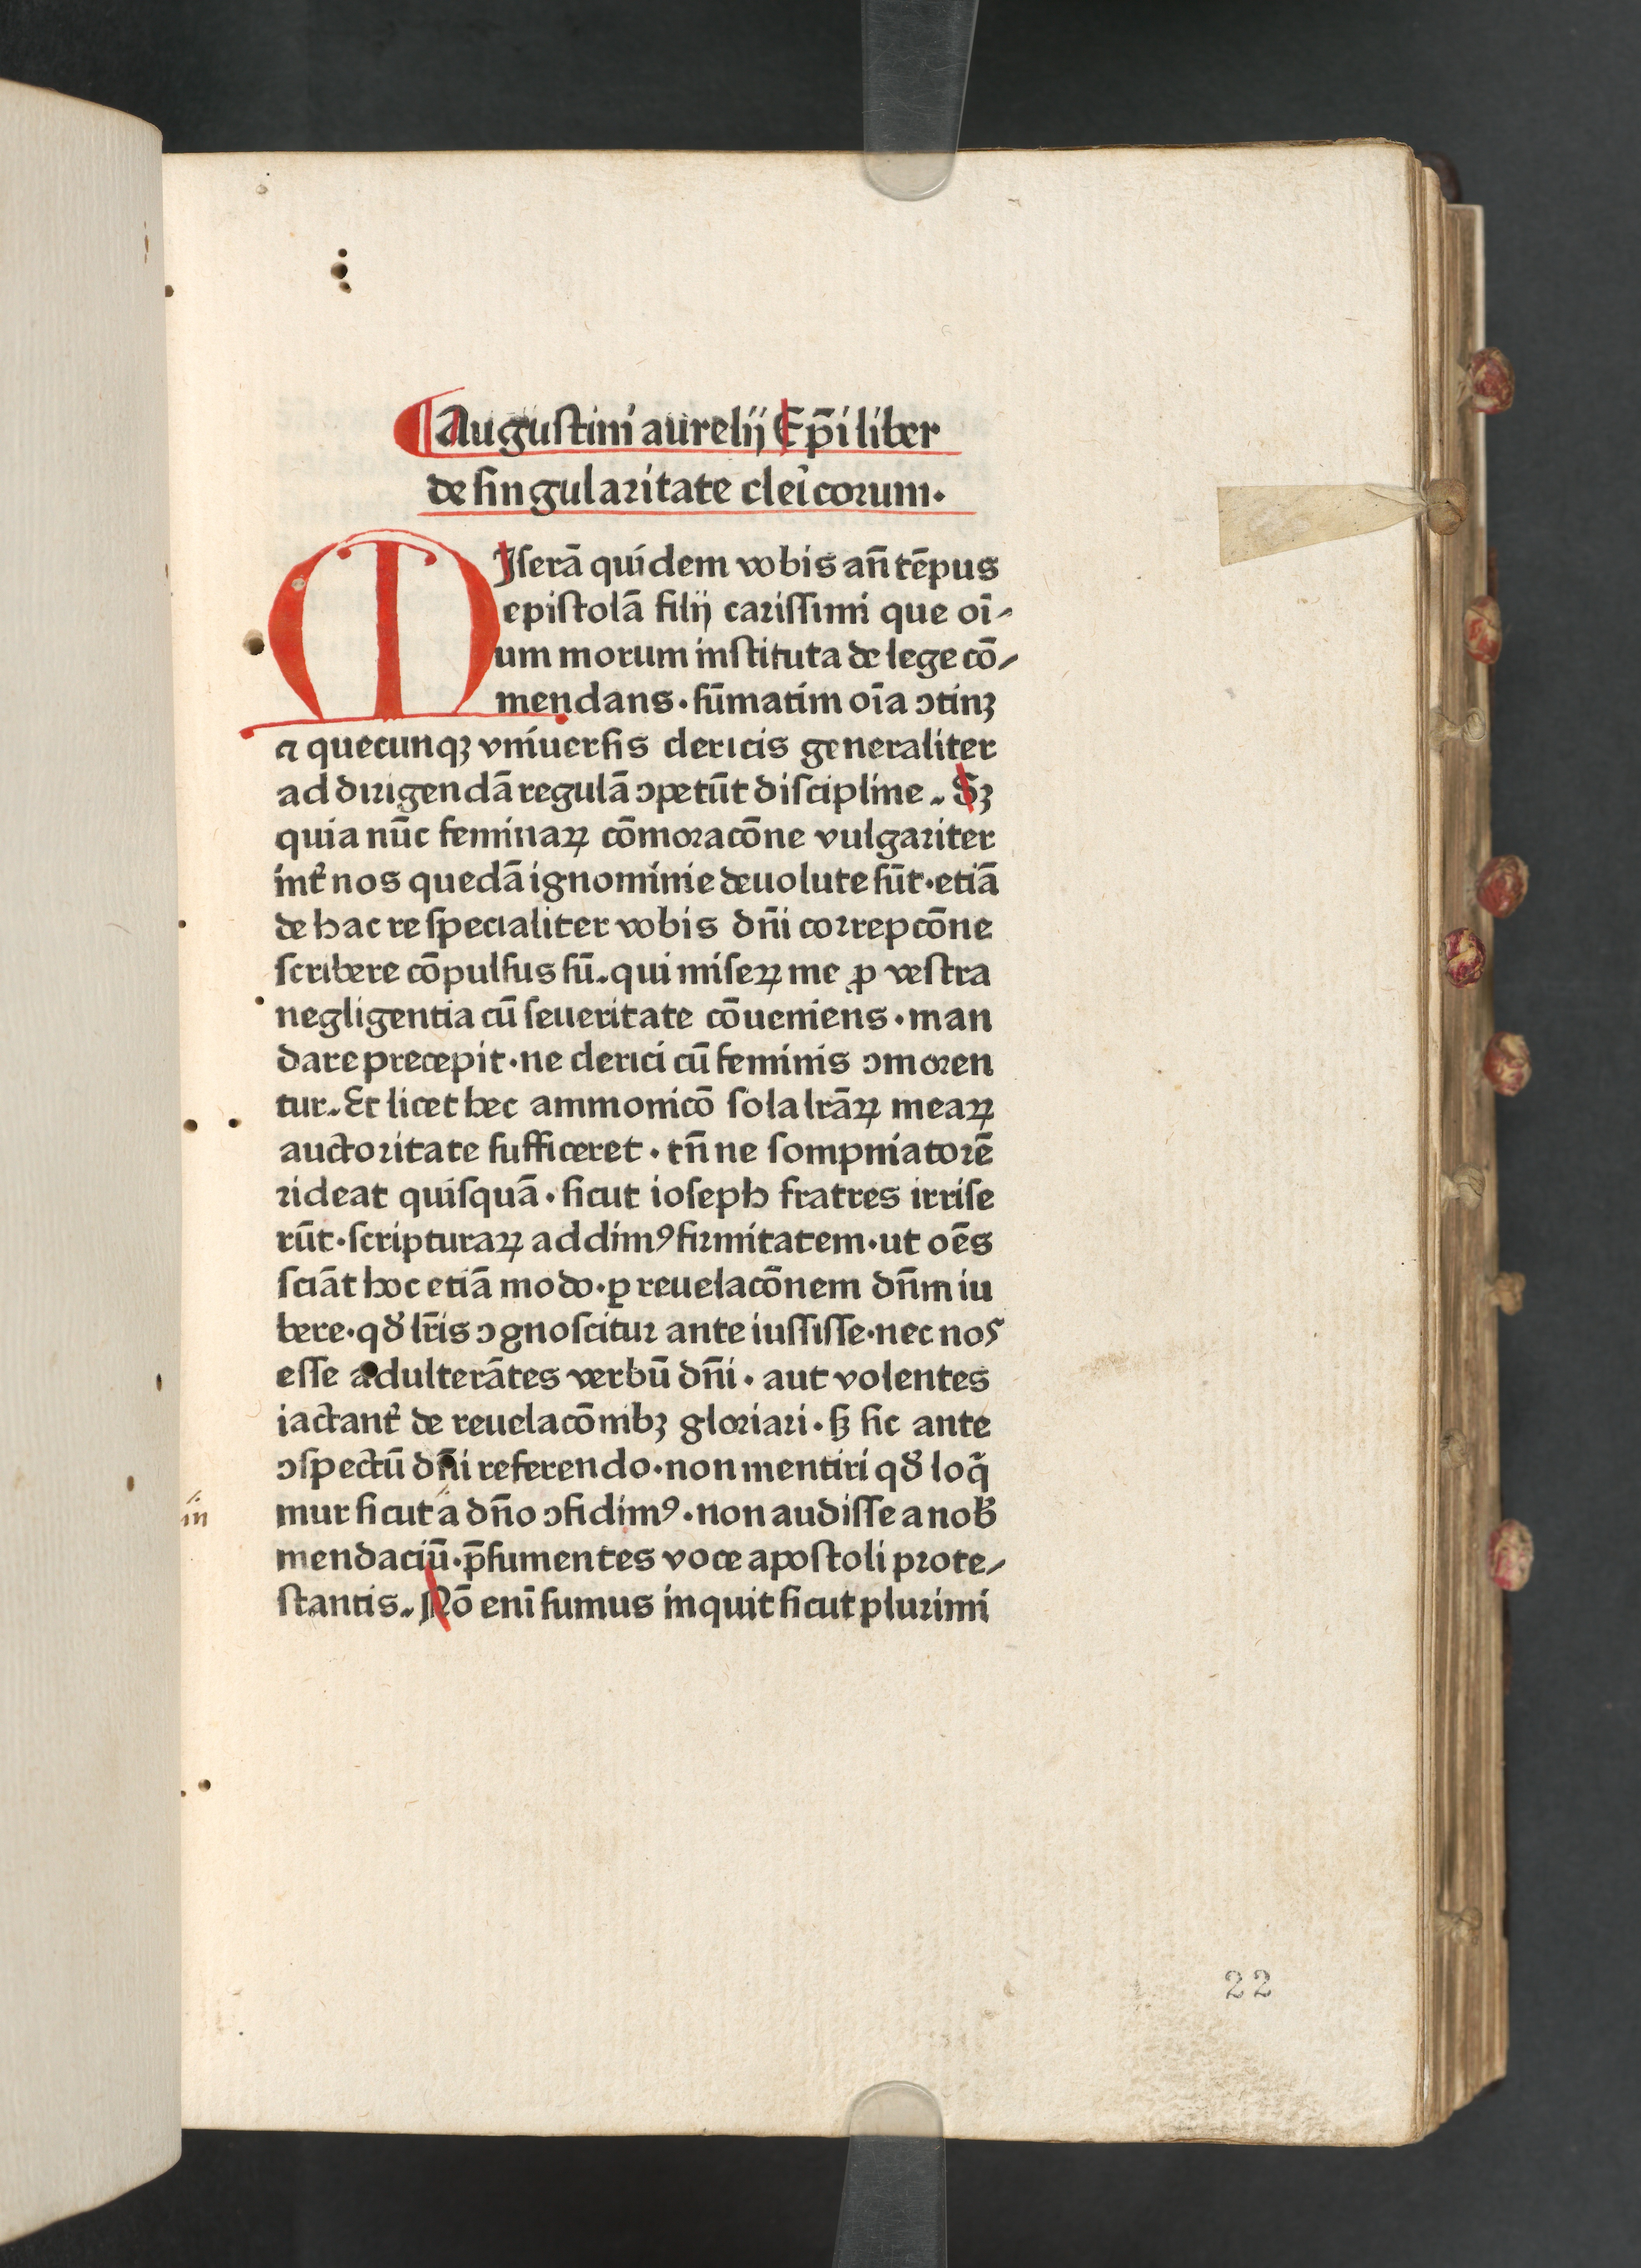 Augustini aurelij Ep̄i liber
de singularitate clei̾corum.
MIserā quidem vobis an̄ tēpus
epistolā filij carissimi que oī-
um morum instituta de lege cō-
mendans · sūmatim oīa ↄtinꝫ
⁊ quecunqꝫ vniuersis clericis generaliter
ad dirigendā regulā ↄpetūt discipline. Sꝫ
quia nūc feminaꝝ cōmoracōne vulgariter
int̾ nos quedā ignominie deuolute sūt · etiā
de hac re specialiter vobis dn̄i correpcōne
scribere cōpulsus sū. qui miseꝝ me ꝓ vestra
negligentia cū seueritate cōueniens · man
dare precepit · ne clerici cū feminis ↄmoren
tur. Et licet hec ammonicō sola lrāꝝ meaꝝ
auctoritate sufficeret · tn̄ ne sompniatorē
rideat quisquā · sicut ioseph fratres irrise
rūt · scripturaꝝ addimꝰ firmitatem · ut oēs
sciāt hoc etiā modo · ꝑ reuelacōnem dn̄m iu
bere · qđ lr̄is ↄgnoscitur ante iussisse · nec nos
esse adulterātes verbū dn̄i · aut volentes
iactant̾ de reuelacōnibꝫ gloriari · sꝫ sic ante
ↄspectū dn̄i referendo · non mentiri qđ loq̄
mur sicut a dn̄o ↄfidimꝰ · non audisse a nob̄
in
mendaciū · p̄sumentes voce apostoli prote-
stantis. Nō eni̅ sumus inquit sicut plurimi
22